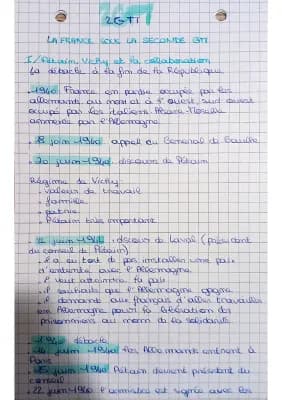 2GM
LA FRANCE SOUS LA SECONDE GM
I/ Pétain, Vichy et la collaboration
La débâcle à la fin de la République
• 1940 France en partie occupée par les
allemands au nord et à l'ouest, sud ouest
occupé par les italiens. Alsace-Moselle
annexée par l'Allemagne
• 18 juin 1940 appel du General de Gaulle
• 20 juin 1940 discours de Pétain
Régime de Vichy:
• valeur de travail
• famille
• patrie
• Pétain très importante
• juin 1942 discours de Laval (président
du conseil de Pétain)
• il a eu tort de pas installer une paix
d'entente avec l'Allemagne
• il veut atteindre la paix
• il souhaite que l'Allemagne gagne
• il demande aux français d'aller travailler
en Allemagne pour la libération des
prisonniers au nom de la solidarité
1940 débâcle
• 14 juin 1940 les Allemands entrent à
Paris
• 15 juin 1940 Pétain devient président du
conseil
• 22 juin 1940 l'armistice est signée avec les